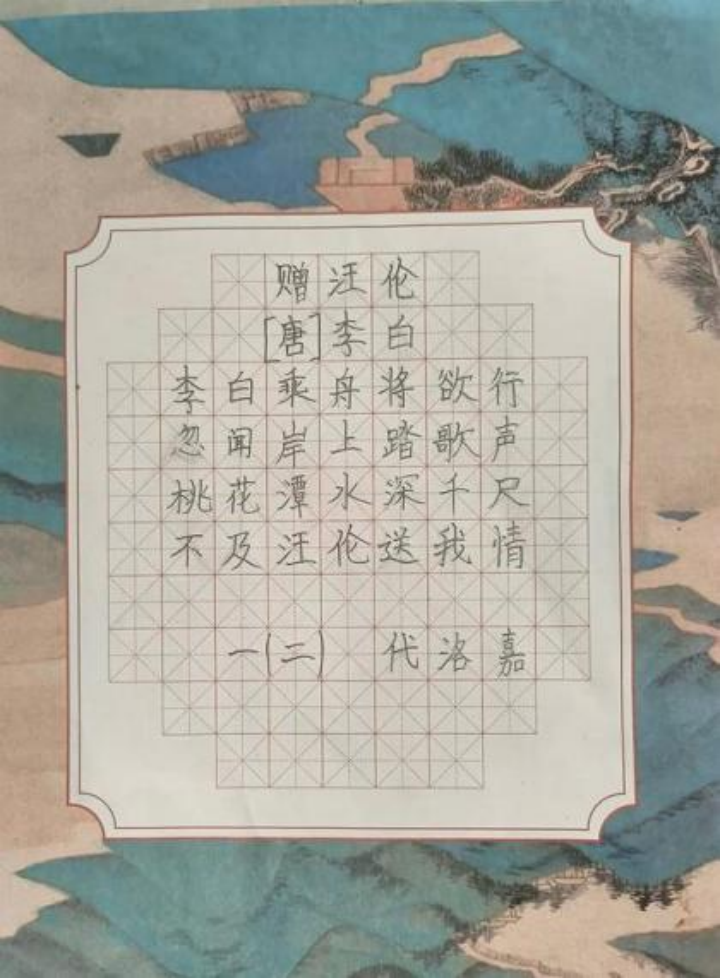 赠汪伦
[唐]李白
李白乘舟将欲行
忽闻岸上踏歌声
桃花潭水深千尺
不及汪伦送我情
一(二) 代洛嘉